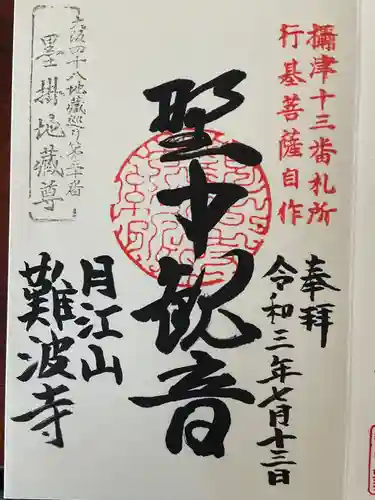 奉拜
令和三年七月十三日
攝津十三番札所
行基菩薩自作
聖中観音
月江山
難波寺
大阪四十八地藏巡り
墨掛地藏尊